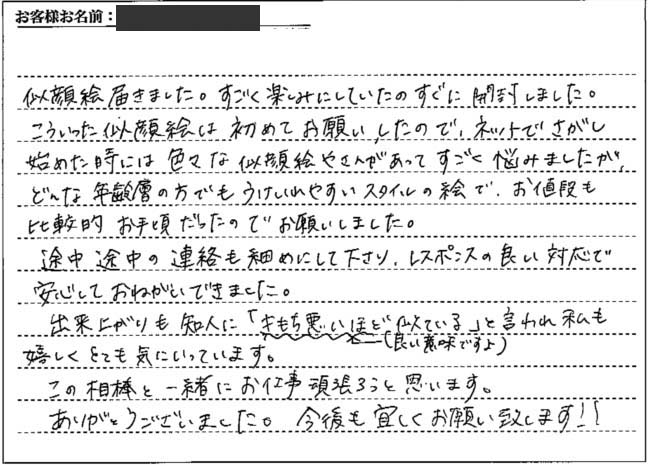 お客様お名前：
似顔絵届きました。すごく楽しみにしていたのすぐに開封しました。
こういった似顔絵は初めてお願いしたので、ネットでさがし
始めた時には色々な似顔絵やさんがあってすごく悩みましたが、
どんな年齢層の方でもうけいれやすいスタイルの絵で、お値段も
比較的お手頃だったのでお願いしました。
途中途中の連絡も細めにして下さり、レスポンスの良い対応で
安心しておねがいできました。
出来上がりも知人に「きもち悪いほど似ている」と言われ私も
(良い意味ですよ)
嬉しくとても気にいっています。
この相棒と一緒にお仕事頑張ろうと思います。
ありがとうございました。今後も宜しくお願い致します!!